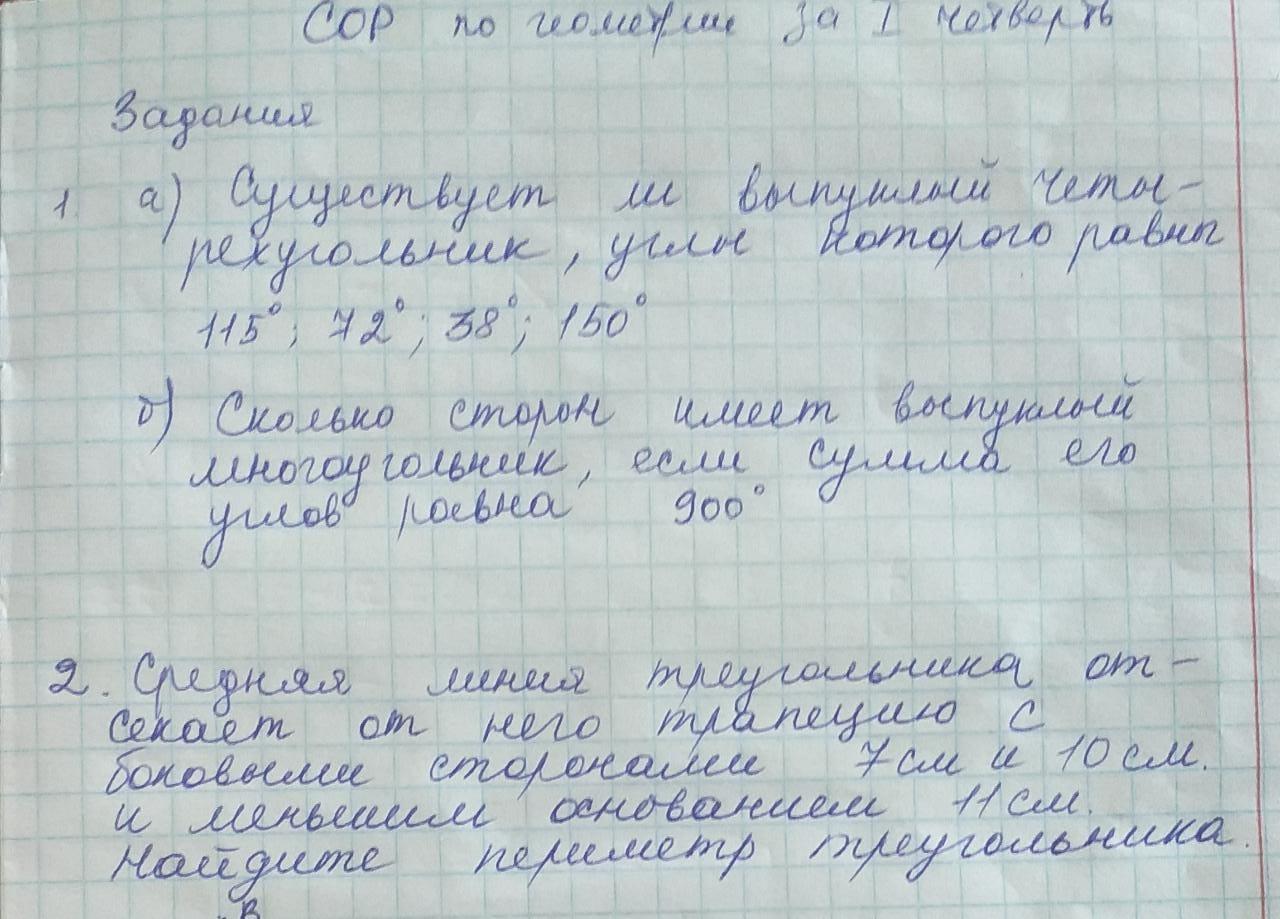 СОР по геометрии за I четверть
Задания
1. а) Существует ли выпуклый четы-
рехугольник, углы которого равны
115°; 72°; 38°; 150°
б) Сколько сторон имеет выпуклый
многоугольник, если сумма его
углов равна 900°
2. Средняя линия треугольника от-
секает от него трапецию с
боковыми сторонами 7см и 10см.
и меньшим основанием 11см.
Найдите периметр треугольника.
В